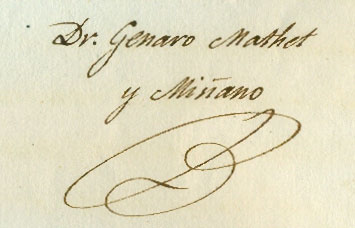 Dr. Genaro Mathet
y Miñano